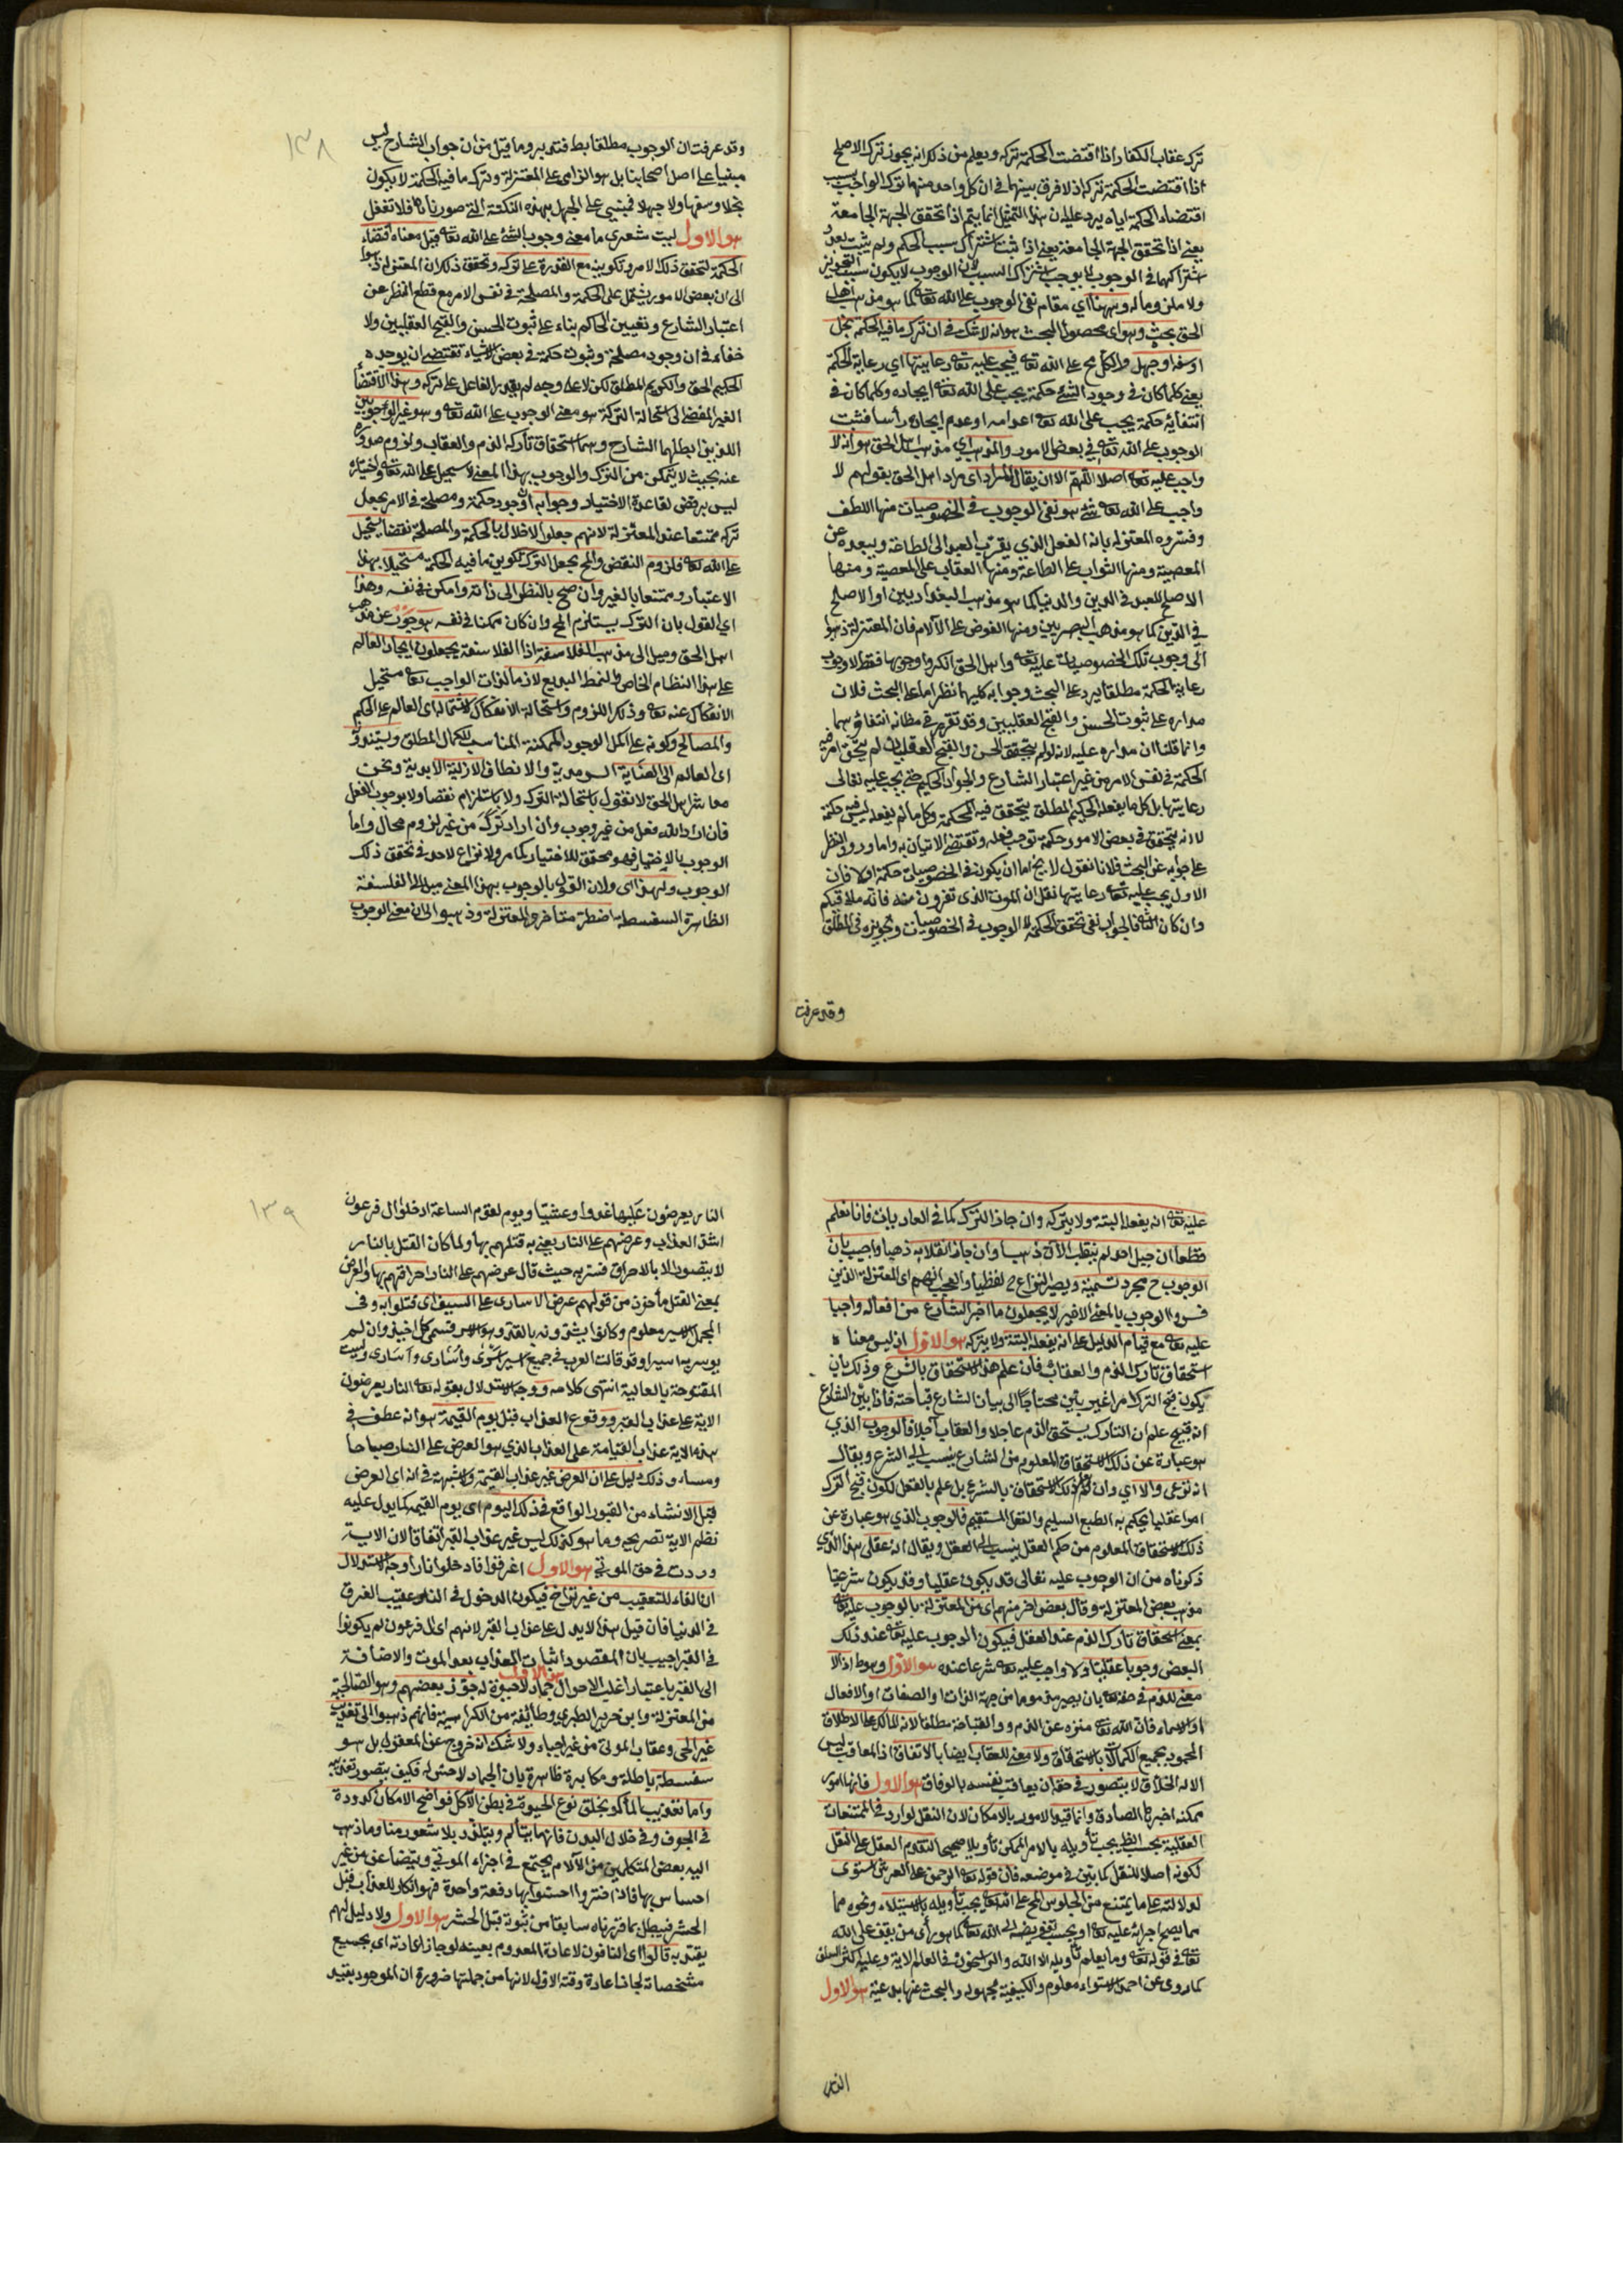 ترك عقاب الكفار اذا اقتضت الحكمة تركه ويعلم من ذلك انه يجوز ترك الاصلح
اذا اقتضت الحكمة تركه اذ لا فرق بينهما في ان كل واحد منهما ترك الواجب بسبب
اقتضاء الحكمة اياه يرد عليه ان هذا التمثيل انما يتم اذا تحقق الجهة الجامعة
يعني اذا تحقق الجهة الجامعة يعني اذا ثبت اشتراك سبب الحكم ولم يثبت بعد
اشتراكهما في الوجوب لا يوجب اشتراك السبب لان الوجوب لا يكون سبب التجويز
ولا ملزومه وههنا اي مقام نفي الوجوب على الله تعه كما هو مذهب اهل
الحق بحث وهو اي محصول المبحث هو انه لا شك في ان ترك ما فيه الحكمة بخل
او سفه او جهل والكل مح على الله تعه فيجب عليه تعه رعايتها اي رعاية الحكمة
يعني كلما كان في وجود الشئ حكمة يجب على الله تعه ايجاده وكلما كان في
انتفائه حكمة يجب على الله تعه اعدامه او عدم ايجاده رأسا فثبت
الوجوب على الله تعه في بعض الامور والمذهب اي مذهب اهل الحق هو انه لا
واجب عليه تعه اصلا اللهم الا ان يقال المراد اي مراد اهل الحق بقولهم لا
واجب على الله تعه شئ هو نفي الوجوب في الخصوصيات منها اللطف
وفسروه المعتزلة بانه الفعل الذي يقرب العبد الى الطاعة ويبعده عن
المعصية ومنها الثواب على الطاعة ومنها العقاب على المعصية ومنها
الاصلح للعبد في الدين والدنيا كما هو مذهب البغداديين او الاصلح
في الدين كما هو مذهب البصريين ومنها العوض على الآلام فان المعتزلة ذهبوا
الى وجوب تلك الخصوصيات عليه تعه واهل الحق انكروا وجوبها فقط لا وجوب
رعاية الحكمة مطلقا يرد على البحث وجوابه كليهما نظر اما على البحث فلان
مداره على ثبوت الحسن والقبح العقليين وقد تقرر في مظانه انتفاؤهما
وانما قلنا ان مداره عليه لانه لو لم يتحقق الحسن والقبح العقليان لم يتحقق امر فيه
الحكمة في نفس الامر من غير اعتبار الشارع والجواد الحكيم حتى يجب عليه تعالى
رعايتها بل كل ما يفعله الحكيم المطلق يتحقق فيه الحكمة وكل ما لم يفعله ليس فيه حكمة
لا انه يتحقق في بعض الامور حكمة توجب فعله وتقتضي الاتيان به واما ورود النظر
على جوابه عن البحث فلانا نقول لا يخ اما ان يكون في الخصوصيات حكمة اولا فان
الاول يجب عليه تعه رعايتها نقل ان الموت الذي تفرون منه فانه ملاقيكم
وان كان الثاني فالجواب نفي تحقق الحكمة لا الوجوب في الخصوصيات وتجويزه في المطلق
وقد عرفت
١٣٨
وقد عرفت ان الوجوب مطلقا بط فتدبر وما قيل من ان جواب الشارح ليس
مبنيا على اصل اصحابنا بل هو الزامي على المعتزلة وترك ما فيه الحكمة لا يكون
بخلا وسفها ولا جهلا فمبني على الجهل بهذه النكتة التي صورناها فلا تغفل
هو الاول ليت شعري ما معنى وجوب الشئ على الله تعه قيل معناه اقتضاء
الحكمة لتحقق ذلك الامر وتكوينه مع القدرة على تركه وتحقق ذلك ان المعتزلة ذهبوا
الى ان بعض الامور يشتمل على الحكمة والمصلحة في نفس الامر مع قطع النظر عن
اعتبار الشارع وتعيين الحاكم بناء على ثبوت الحسن والقبح العقليين ولا
خفاء في ان وجود مصلحة وثبوت حكمة في بعض الاشياء تقتضي ان يوجده
الحكيم الحق والكريم المطلق لكن لا على وجه لم يقدر الفاعل على تركه وهذا الاقتضاء
الغير المفضي الى استحالة الترك هو معنى الوجوب على الله تعه وهو غير الوجوبين
اللذين ابطلهما الشارح وهما استحقاق تاركه الذم والعقاب ولزوم صدوره
عنه بحيث لا يتمكن من الترك والوجوب بهذا المعنى لا يستحيل على الله تعه واختياره
ليس برفض لقاعدة الاختيار وجوابه ان وجود حكمة ومصلحة في الامر يجعل
تركه ممتنعا عند المعتزلة لانهم جعلوا الاخلال بالحكمة والمصلحة نقضا يستحيل
على الله تعه فلزوم النقض والمح يجعل الترك لكوين ما فيه الحكمة مستحيلا بهذا
الاعتبار وممتنعا بالغير وان صح بالنظر الى ذاته وامكن في نفسه وهذا
اي القول بان الترك يستلزم المح وان كان ممكنا في نفسه هو خروج عن مذهب
اهل الحق وميل الى مذهب الفلاسفة اذ الفلاسفة يجعلون ايجاد العالم
على هذا النظام الخاص والنمط البديع لازما لذات الواجب تعه مستحيل
الانفكاك عنه تعه وذلك اللزوم واستحالة الانفكاك لاشتماله اي العالم على الحكم
والمصالح وكونه على اكمل الوجود الممكنة المناسب للكمال المطلق ويسندونه
اي العالم الى العناية السرمدية والانطاف الازلية الابدية ونحن
معاشر اهل الحق لا نقول باستحالة الترك ولا باستلزام نقصا ولا بوجوب الفعل
فان اراد الله فعل من غير وجوب وان اراد ترك من غير لزوم محال واما
الوجوب بالاختيار فهو محقق للاختيار كما مر ولا نزاع لاحد في تحقق ذلك
الوجوب ولهذا اي ولان القول بالوجوب بهذا المعنى ميل الى الفلسفة
الظاهرة السفسطة اضطر متأخرو المعتزلة وذهبوا الى ان معنى الوجوب
عليه تعه انه يفعله البتة ولا يتركه وان جاز الترك كما في العاديات فانا نعلم
قطعا ان جبل احد لم ينقلب الآن ذهبا وان جاز انقلابه ذهبا واجيب بان
الوجوب ح مجرد تسمية ويصير النزاع ح لفظيا والعجب انهم اي المعتزلة الذين
فسروا الوجوب بالمعنى الاخير لا يجعلون ما اخبر الشارع من افعاله واجبا
عليه تعه مع قيام الدليل على انه يفعله البتة ولا يتركه هو الاول اذ ليس معناه
استحقاق تاركه الذم والعقاب فان علم هذا الاستحقاق بالشرع وذلك بان
يكون قبح الترك امرا غير بين محتاجا الى بيان الشارع قباحته فاذا بين الشارع
انه قبيح علم ان التارك يستحق الذم عاجلا والعقاب آجلا فالوجوب الذي
هو عبارة عن ذلك الاستحقاق المعلوم من الشارع ينسب الى الشرع ويقال
انه شرعي والا اي وان لم يكن ذلك الاستحقاق بالشرع بل علم بالعقل لكون قبح الترك
امرا عقليا يحكم به الطبع السليم والعقل المستقيم فالوجوب الذي هو عبارة عن
ذلك الاستحقاق المعلوم من حكم العقل ينسب الى العقل ويقال انه عقلي هذا الذي
ذكرناه من ان الوجوب عليه تعالى قد يكون عقليا وقد يكون شرعيا
مذهب بعض المعتزلة وقال بعض اخر منهم اي من المعتزلة بالوجوب عليه تعه
بمعنى استحقاق تاركه الذم عند العقل فيكون الوجوب عليه تعه عند ذلك
البعض وجوبا عقليا ولا واجب عليه تعه شرعا عنده هو الاول وهو ظ اذ لا
معنى للذم في حقه تعه بان يصير مذموما من جهة الذات او الصفات او الافعال
او الاسماء فان الله تعه منزه عن الذم والقباحة مطلقا لانه المالك على الاطلاق
المحمود بجميع الكمالات بالاستحقاق ولا معنى للعقاب ايضا بالاتفاق اذ المعاقب ليس
الا له الخلاق لا يتصور في حقه ان يعاقب نفسه بالوفاق هو الاول فانها امور
ممكنة اخبر بها الصادق وانما قيد الامور بالامكان لان النقل الوارد في الممتنعات
العقلية بحسب النظر يجب تأويله بالامر الممكن تأويلا صحيحا لتقدم العقل على النقل
لكونه اصلا للنقل كما بين في موضعه فان قوله تعه الرحمن على العرش استوى
لدلالته على ما يمتنع من الجلوس المح على الله تعه يجب تأويله بالاستيلاء ونحوه مما
مما يصح اجرائه عليه تعه او يجب تفويضه الى الله تعه كما هو رأى من يقف على الله
تعه في قوله تعه وما يعلم تأويله الا الله والراسخون في العلم الاية وعليه اكثر السلف
كما روى عن احمد الاستواء معلوم والكيفية مجهولة والبحث عنها بدعة هو الاول
النار
١٣٩
النار يعرضون عليها غدوا وعشيا ويوم تقوم الساعة ادخلوا ال فرعون
اشد العذاب وعرضهم على النار يعني به قتلهم بها ولما كان القتل بالنار
لا يتصور الا بالاحراق فسر به حيث قال عرضهم على النار احراقهم بها والعرض
بمعنى القتل مأخوذ من قولهم عرض الاسارى على السيف اي قتلوا به وفي
المجمل الاسير معلوم وكانوا يشدونه بالقد وهو الاسر فسمي كل اخيذ وان لم
يوسر به اسيرا وقد قالت العرب في جميع اسير اسرى وأسارى وأسارى وليست
المفتوحة بالعالية انتهى كلامه ووجه الاستدلال بقوله تعه النار يعرضون
الاية على عذاب القبر ووقوع العذاب قبل يوم القيمة هو انه عطف في
هذه الاية عذاب القيامة على العذاب الذي هو العرض على النار صباحا
ومساء وذلك دليل على ان العرض غير عذاب القيمة ولا شبهة في انه اي العرض
قبل الانشاء من القبور الواقع في ذلك اليوم اي يوم القيمة كما يدل عليه
نظم الاية تصريحه وما هو كذلك ليس غير عذاب القبر اتفاقا لان الاية
وردت في حق الموتى هو الاول اغرقوا فادخلوا نارا وجه الاستدلال
ان الفاء للتعقيب من غير تراخ فيكون الدخول في النار عقيب الغرق
في الدنيا فان قيل هذا لا يدل على عذاب القبر لانهم اي ال فرعون لم يكونوا
في القبر اجيب بان المقصود اثبات العذاب بعد الموت والاضافة
الى القبر باعتبار اغلب الاحوال هو الاول جماد لا حيوة له جوز بعضهم وهو الصالحية
من المعتزلة وابن جرير الطبري وطائفة من الكرامية فانهم ذهبوا الى تعذيب
غير الحي وعقاب الموتى من غير احياء ولا شك انه خروج عن المعقول بل هو
سفسطة باطلة ومكابرة ظاهرة بان الجماد لا حس له فكيف يتصور تعذيبه
واما تعذيب المأكول بخلق نوع الحيوة في بطن الآكل فواضح الامكان كدودة
في الجوف وفي خلال البدن فانها يتألم ويتلذذ بلا شعور منا وما ذهب
اليه بعض المتكلمين من الآلام يجتمع في اجزاء الموتى ويتضاعف من غير
احساس بها فاذا حشروا احسوا بها دفعة واحدة فهو انكار للعذاب قبل
الحشر فيبطل بما قررناه سابقا من ثبوته قبل الحشر هو الاول ولا دليل لهم
يعتد به قالوا اي النافون لاعادة المعدوم بعينه لو جاز اعادته اي بجميع
مشخصاته لجاز اعادة وقته الاول لانها من جملتها ضرورة ان الموجود بقيد